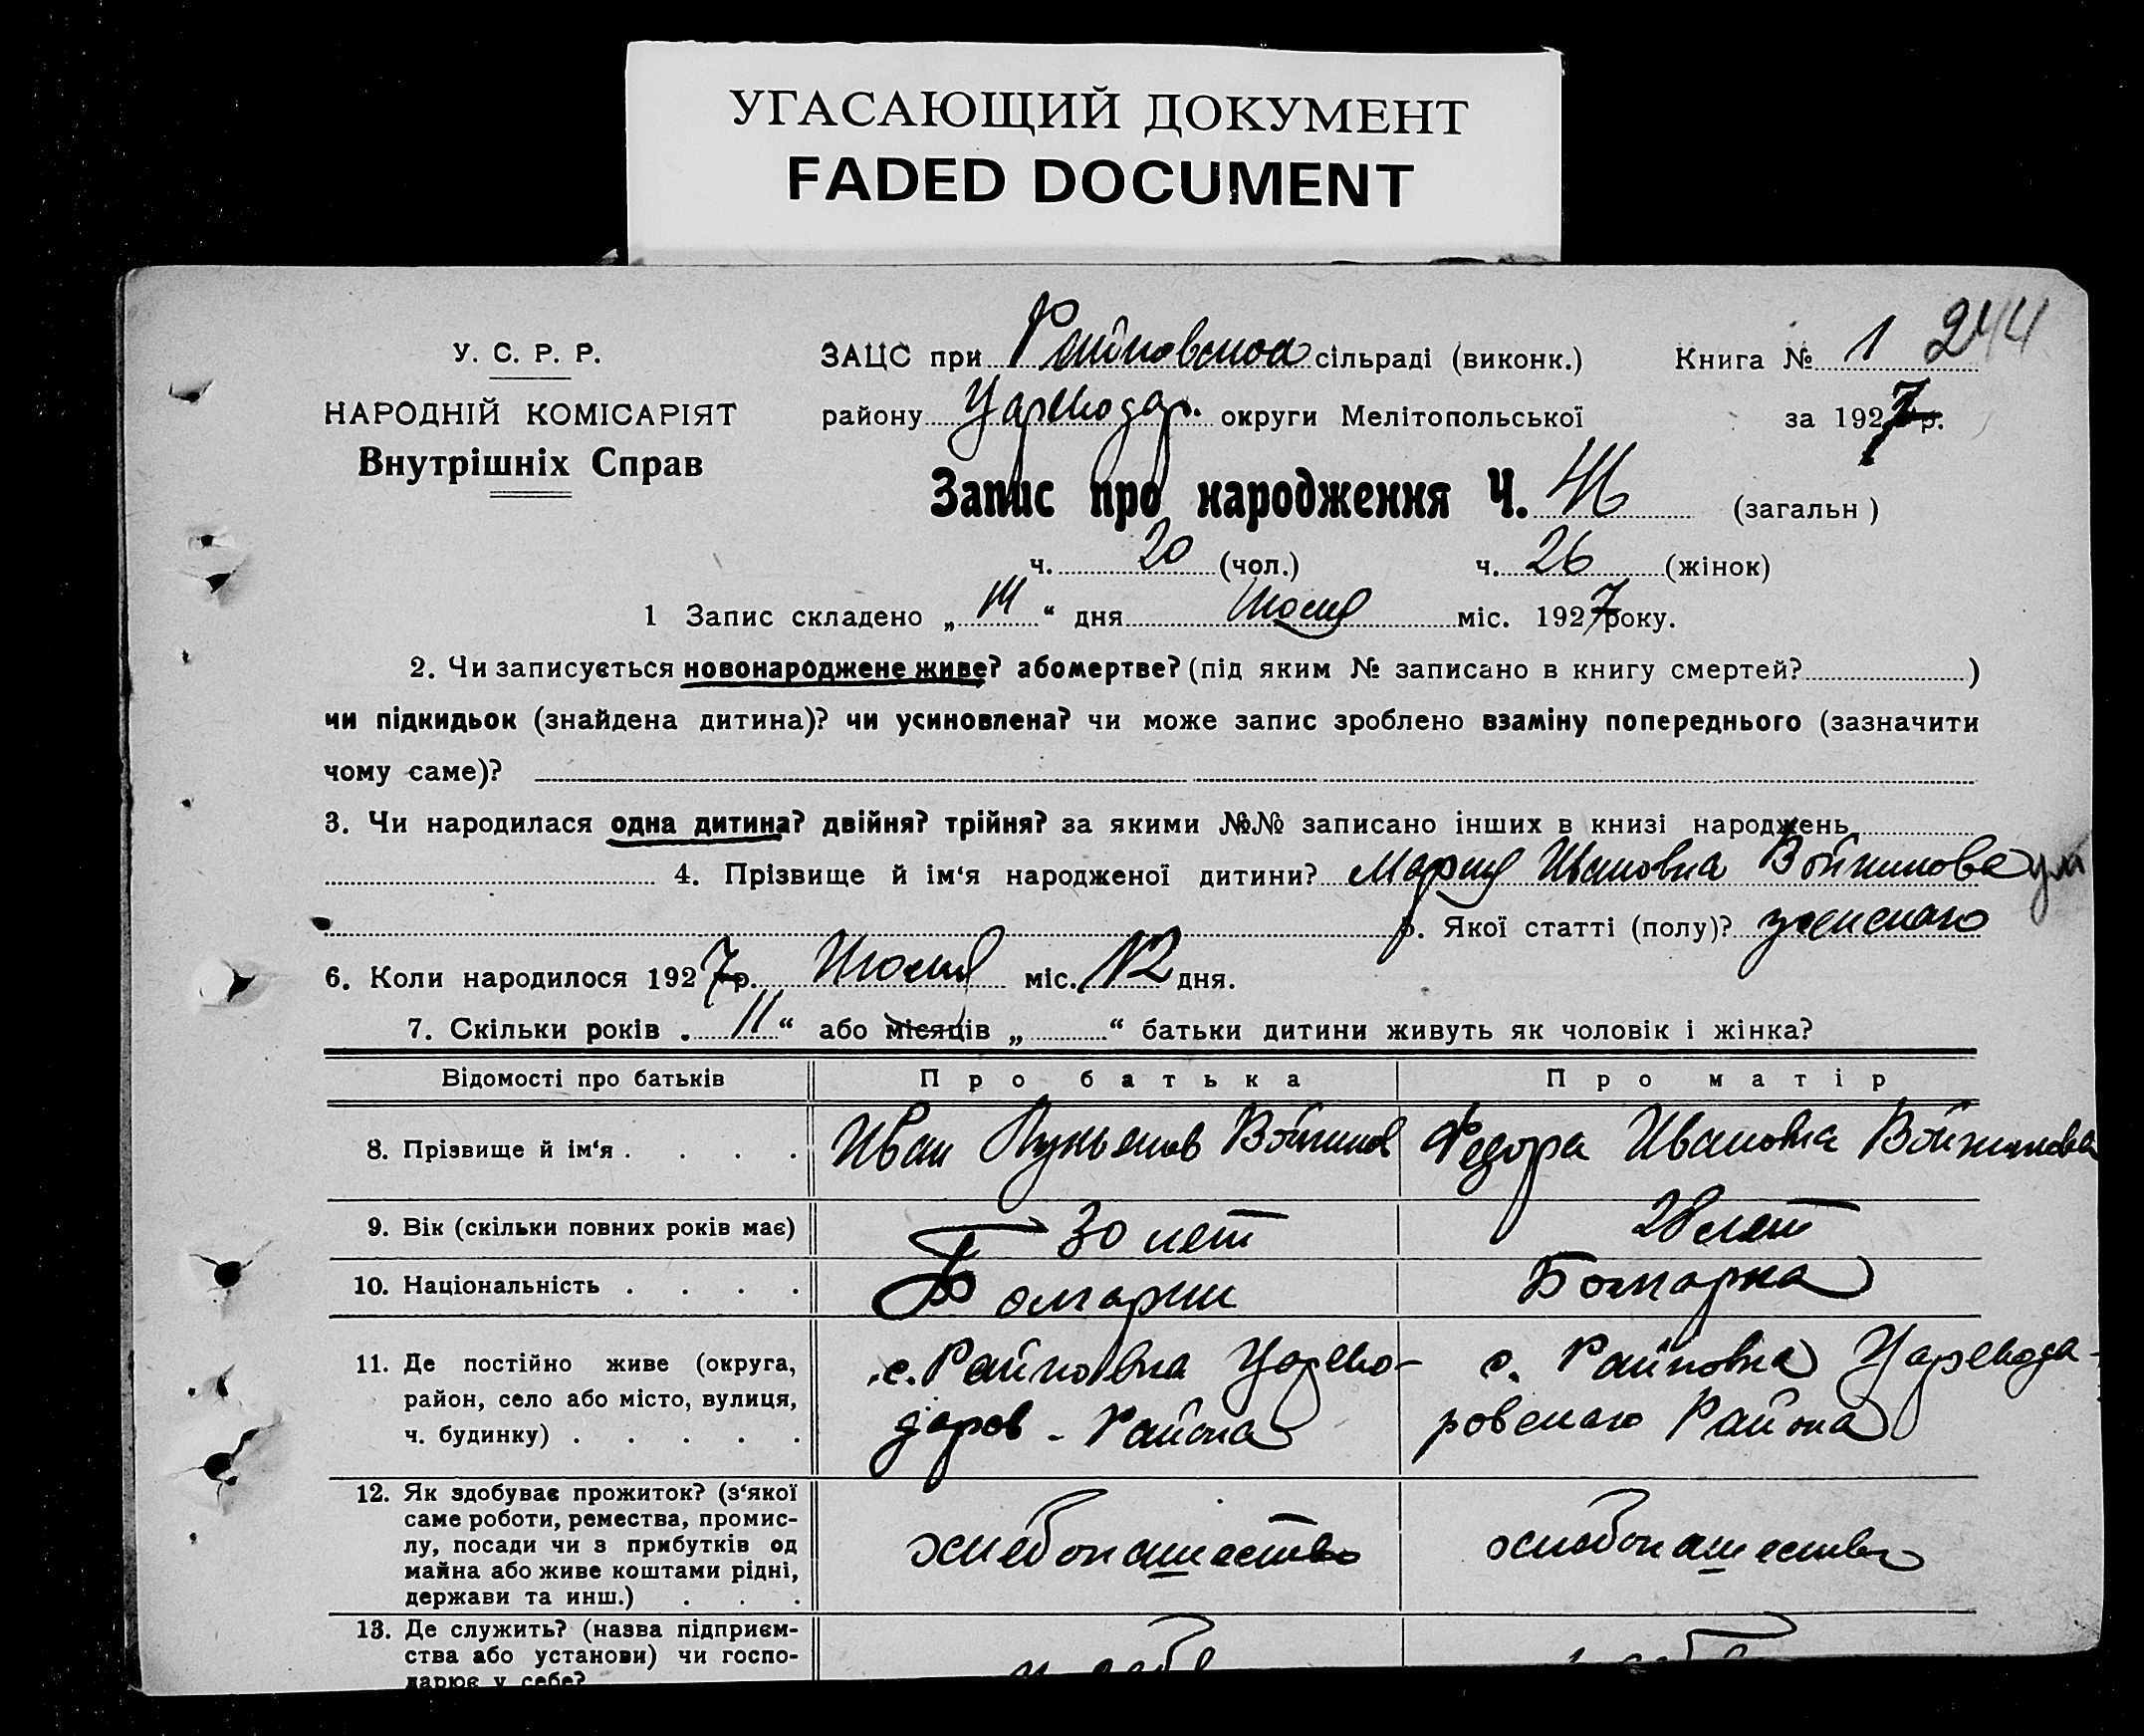 УГАСАЮЩИЙ ДОКУМЕНТ
FADED DOCUMENT
244
У. С. Р. Р.
НАРОДНІЙ КОМІСАРІЯТ
Внутрішніх Справ
ЗАЦС при Райновской сільраді (виконк.) Книга № 1
району Цареводар. округи Мелітопольської за 1927 р.
Запис про народження Ч. 46 (загальн)
ч. 20 (чол.) ч. 26 (жінок)
1 Запис складено „14“ дня Июля міс. 1927 року.
2. Чи записується новонароджене живе? абомертве? (під яким № записано в книгу смертей? )
чи підкидьок (знайдена дитина)? чи усиновлена? чи може запис зроблено взаміну попереднього (зазначити
чому саме)?
3. Чи народилася одна дитина? двійня? трійня? за якими №№ записано інших в книзі народжень
4. Прізвище й ім‘я народженої дитини? Мария Ивановна Войникова ум
5. Якої статті (полу)? женского
6. Коли народилося 1927 р. Июля міс. 12 дня.
7. Скільки років „11“ або місяців „ “ батьки дитини живуть як чоловік і жінка?
Відомості про батьків Про батька Про матір
8. Прізвище й ім‘я . . . . Иван Лукьянов Войников Федора Ивановна Войникова
9. Вік (скільки повних років має) 30 лет 28 лет
10. Національність . . . . Болгарин Болгарка
11. Де постійно живе (округа,
район, село або місто, вулиця,
ч. будинку) . . . . .
с. Райновка Царево-
даров - Района
с. Райновка Царевода-
ровского Района
12. Як здобуває прожиток? (з‘якої
саме роботи, ремества, промис-
лу, посади чи з прибутків од
майна або живе коштами рідні,
держави та инш.) . . .
хлебопашество
хлебопашество
13. Де служить? (назва підприєм-
ства або установи) чи госпо-
дарює у себе?